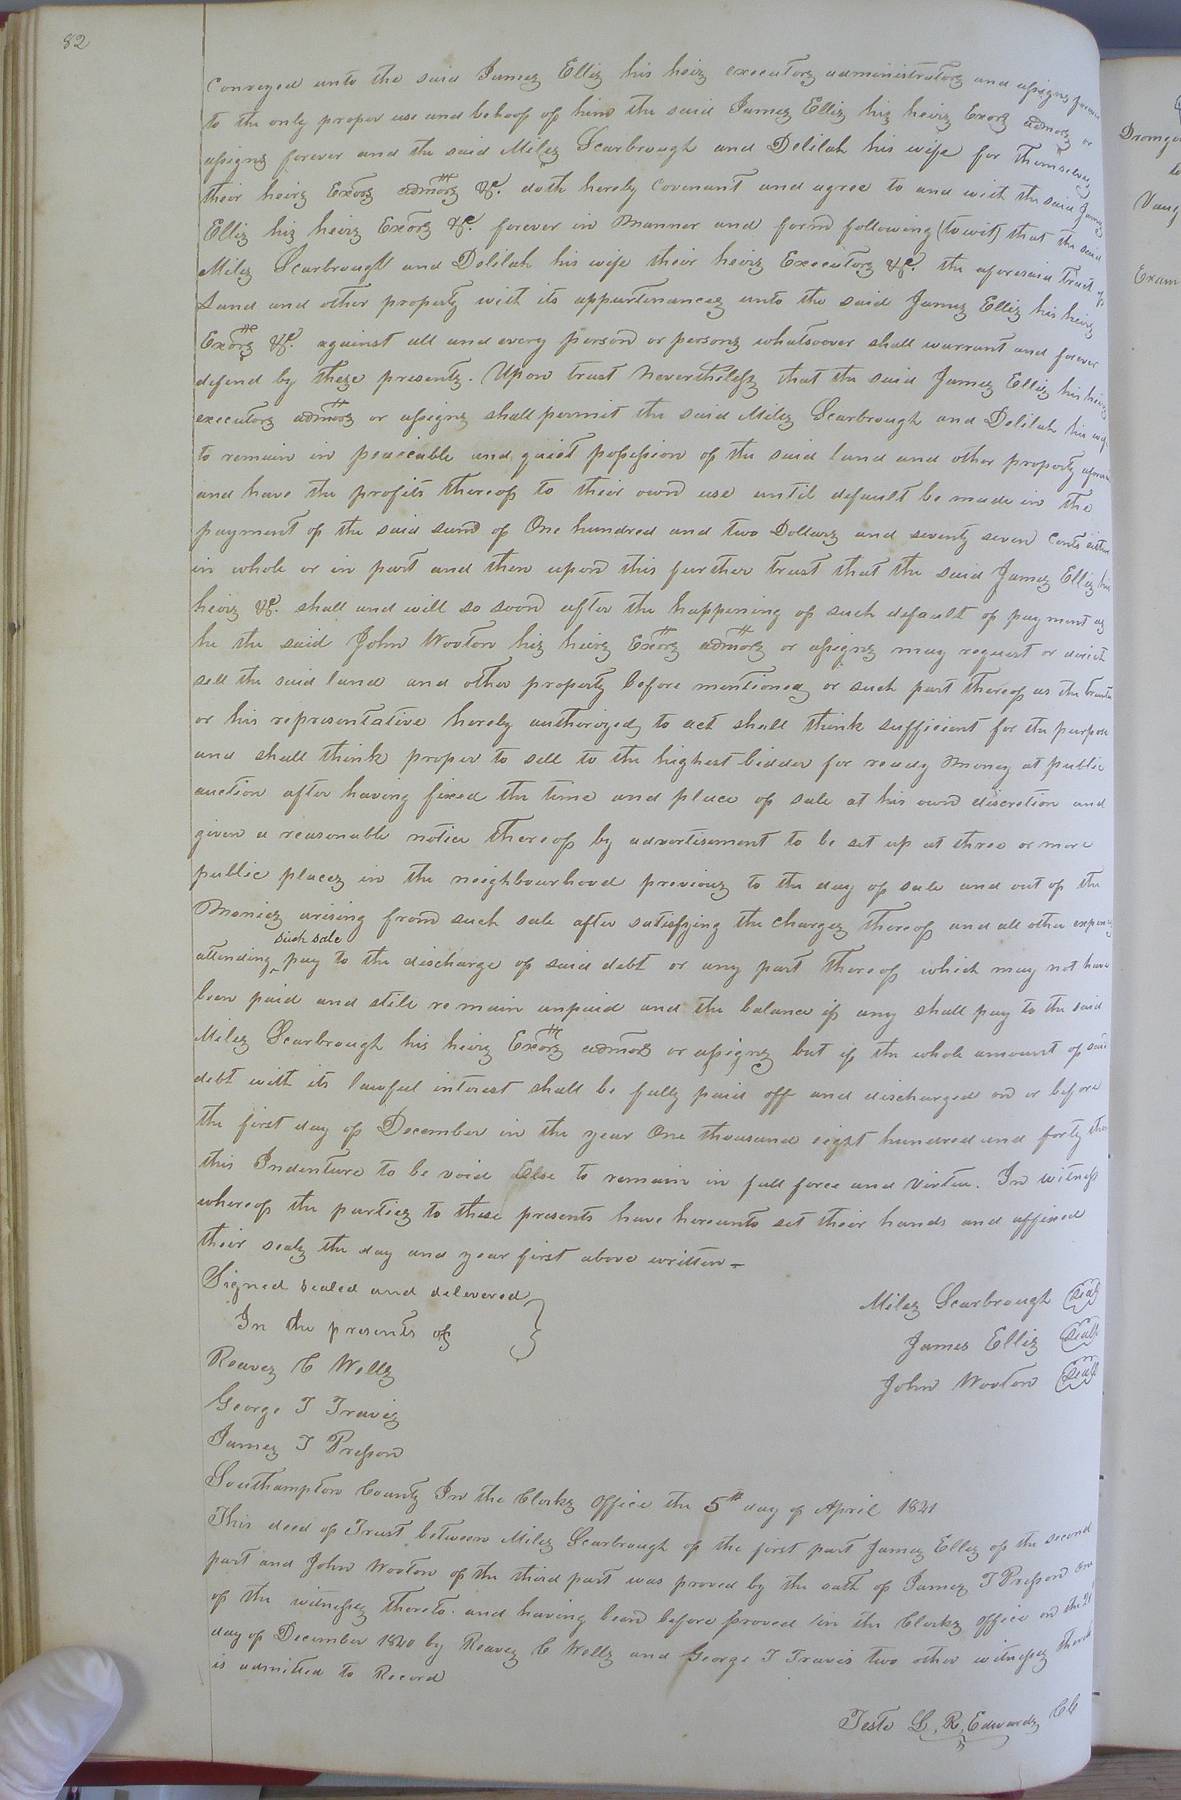 82
Conveyed unto the said James Ellis his heirs executors administrators and assigns forever
to the only proper use and behoof of him the said James Ellis his heirs Exors admors or
assigns forever and the said Miles Scarbrough and Delilah his wife for themselves
their heirs Exors admors &c. doth hereby Covenant and agree to and with the said James
Ellis his heirs Exors &c. forever in Manner and form following (to wit) that the said
Miles Scarbrough and Delilah his wife their heirs Executors &c. the aforesaid tract of
Land and other property with its appurtenances unto the said James Ellis his heirs
Exors &c. against all and every person or persons whatsoever shall warrant and forever
defend by these presents. Upon trust Nevertheless that the said James Ellis his heirs
executors admors or assigns shall permit the said Miles Scarbrough and Delilah his wife
to remain in peaceable and quiet possession of the said land and other property
and have the profits thereof to their own use until default be made in the
payment of the said sum of One hundred and two Dollars and seventy seven Cents either
in whole or in part and then upon this further trust that the said James Ellis his
heirs &c. shall and will so soon after the happening of such default of payment as
he the said John Wooton his heirs Exors admors or assigns may request or direct
sell the said land and other property before mentioned or such part thereof as the trustee
or his representative hereby authorized to act shall think sufficient for the purpose
and shall think proper to sell to the highest bidder for ready Money at public
auction after having fixed the time and place of sale at his own discretion and
given a reasonable notice thereof by advertisement to be set up at three or more
public places in the neighbourhood previous to the day of sale and out of the
Monies arising from such sale after satisfying the charges thereof and all other expenses
such sale
attending pay to the discharge of said debt or any part thereof which may not have
been paid and still remain unpaid and the balance if any shall pay to the said
Miles Scarbrough his heirs Exors admors or assigns but if the whole amount of said
debt with its lawful interest shall be fully paid off and discharged on or before
the first day of December in the year One thousand eight hundred and forty
this Indenture to be void Else to remain in full force and Virtue. In witness
whereof the parties to these presents have hereunto set their hands and affixed
their seals the day and year first above written -
Signed sealed and delivered
In the presents of
Miles Scarbrough Seal
James Ellis Seal
John Wooton Seal
Reaves C Wells
George T Travis
James T Presson
Southampton County In the Clerks Office the 5th day of April 1841
This deed of Trust between Miles Scarbrough of the first part James Ellis of the second
part and John Wooton of the third part was proved by the oath of James T Presson one
of the witnesses thereto. and having been before proved in the Clerks Office on the 21
day of December 1840 by Reaves C Wells and George T Travis two other witnesses thereto
is admitted to Record
Teste L. R. Edwards Clk
Vaug
Exam